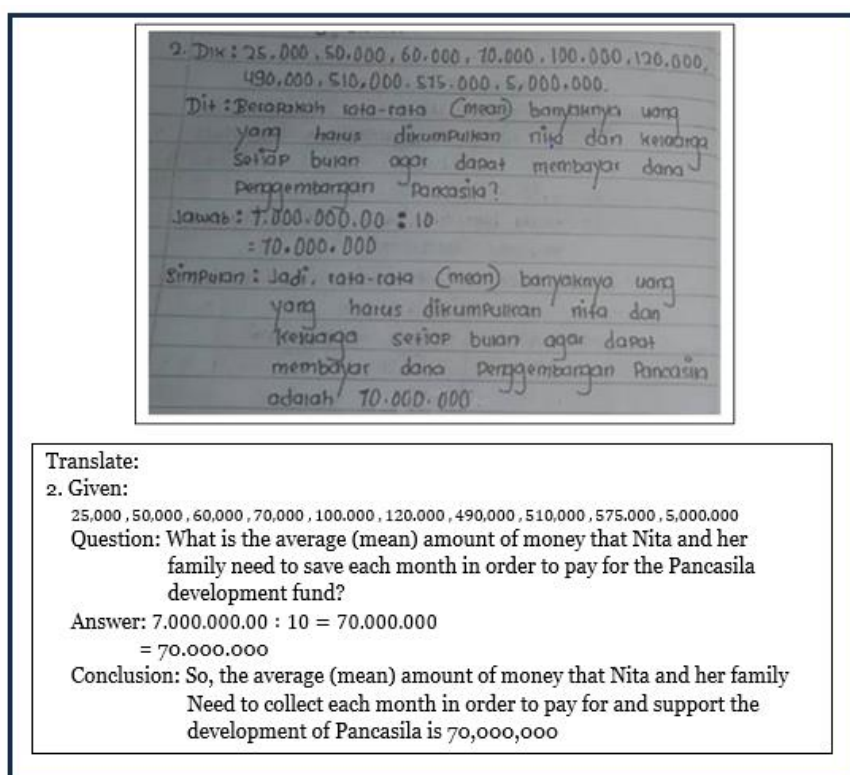 2. Dik : 25.000 , 50.000 , 60.000 , 70.000 , 100.000 , 120.000,
490.000 , 510.000 . 575.000 . 5,000.000.
Dit : Berapakah rata-rata (mean) banyaknya uang
yang harus dikumpulkan nita dan keluarga
setiap bulan agar dapat membayar dana
Penggembangan Pancasila?
Jawab : 7.000.000.00 : 10
= 70.000.000
Simpulan : Jadi, rata-rata (mean) banyaknya uang
yang harus dikumpulkan nita dan
keluarga setiap bulan agar dapat
membayar dana Penggembangan Pancasila
adalah 70.000.000
Translate:
2. Given:
25,000 , 50,000 , 60,000 , 70,000 , 100.000 , 120.000 , 490,000 , 510,000 , 575.000 , 5,000.000
Question: What is the average (mean) amount of money that Nita and her
family need to save each month in order to pay for the Pancasila
development fund?
Answer: 7.000.000.00 : 10 = 70.000.000
= 70.000.000
Conclusion: So, the average (mean) amount of money that Nita and her family
Need to collect each month in order to pay for and support the
development of Pancasila is 70,000,000